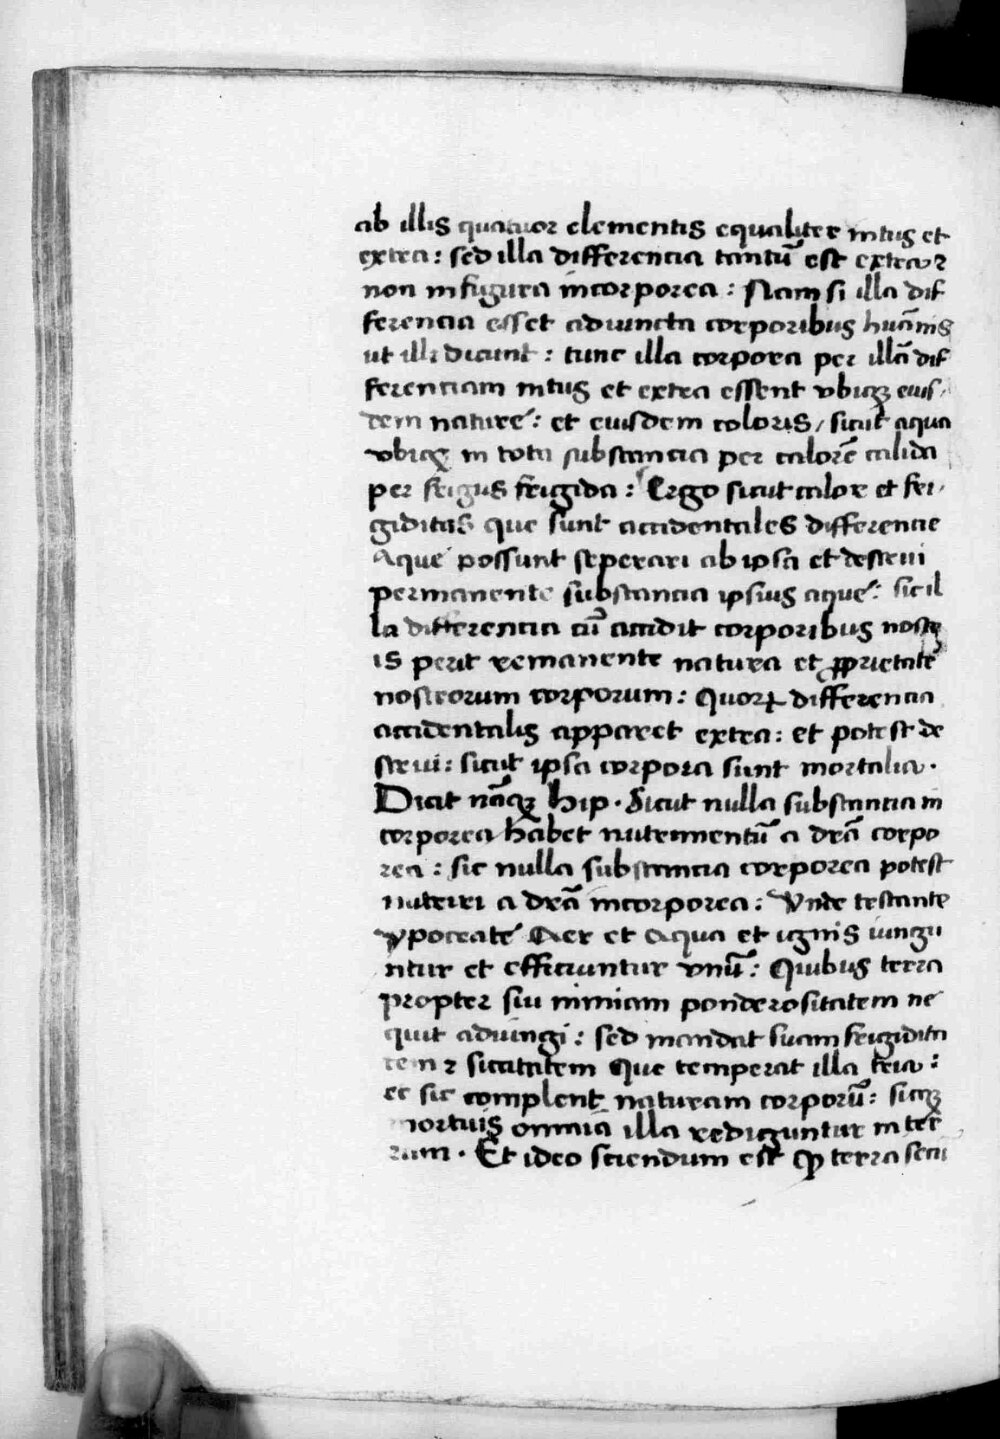 ab illis quatuor elementis equaliter intus et
extra: sed illa differencia tantũ est extra ⁊
non in figura incorporea: Nam si illa dif
ferencia esset adiuncta corporibus huãnis
ut illi dicunt: tunc illa corpora per illã dif
ferenciam intus et extra essent vbiqꝫ eius/
dem nature: et eiusdem coloris/ sicut aqua
vbiqꝫ in tota substancia per calorẽ calida
per frigus frigida: Ergo sicut calor et fri/
giditas que sunt accidentales differencie
Aque possunt seperari ab ipsa et destrui
permanente substancia ipsius aque: sic il
la differencia cũ accidit corporibus nostr
is perit remanente natura et ꝓprietate
nostrorum corporum: Quorꝝ differencia
accidentalis apparet extra: et potest de
strui: sicut ipsa corpora sunt mortalia.
Dicit nãqꝫ hip. Sicut nulla substancia in
corporea habet nutrimentũ a drã corpo
rea: sic nulla substancia corporea potest
nutriri a drã incorporea: Vnde testante
ypocrate Aer et Aqua et ignis iungu
ntur et efficiuntur vnũ: Quibus terra
propter sui nimiam ponderositatem ne
quit adiungi: sed mandat suam frigidita
tem ⁊ siccitatem Que temperat illa tria:
et sic complent naturam corporũ: sicqꝫ
mortuis omnia illa rediguntur in ter
ram. Et ideo sciendum est ꝙ terra secu